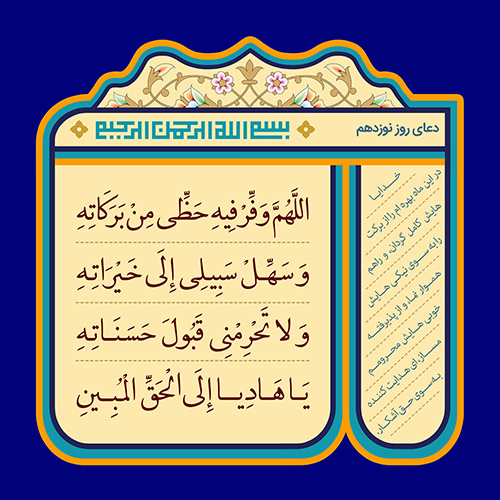 دعای روز نوزدهم
بسم الله الرحمن الرحیم
اللَّهُمَّ وَفِّرْ فِيهِ حَظِّي مِنْ بَرَكَاتِهِ
وَ سَهِّلْ سَبِيلِي إِلَى خَيْرَاتِهِ
وَ لا تَحْرِمْنِي قَبُولَ حَسَنَاتِهِ
يَا هَادِيا إِلَى الْحَقِّ الْمُبِينِ
خدایا
در این ماه بهره ام را از برکت
هایش کامل گردان، و راهم
را به سوی نیکی هایش
هموار نما، و از پذیرفتن
خوبی هایش محرومم
مساز، ای هدایت کننده
به سوی حق آشکار.